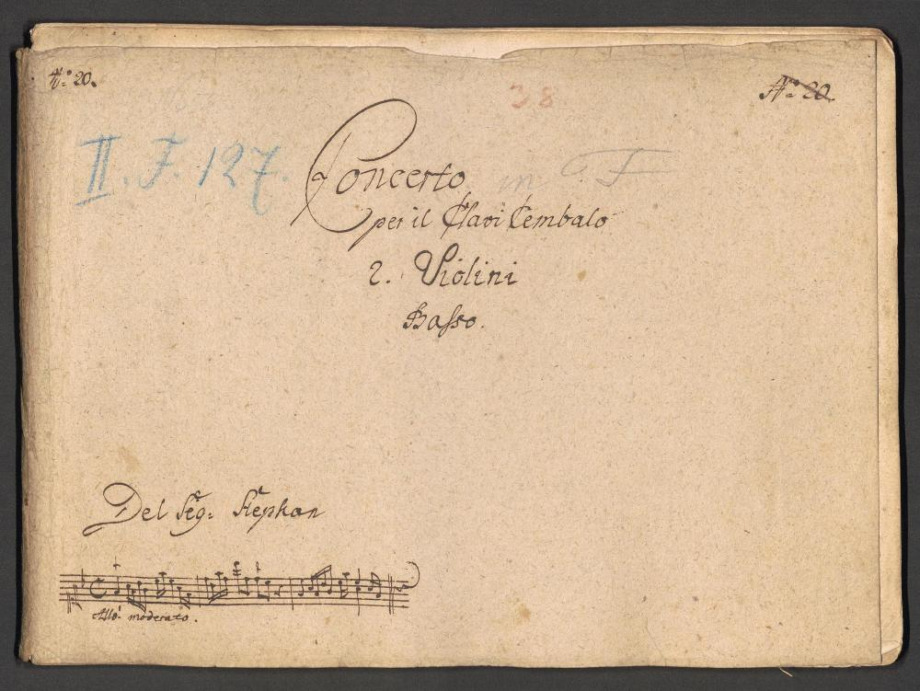 N.º 20.
N.º 20.
38
II. F. 127.
Concerto in F
per il Clavi Cembalo
2. Violini
Basso.
Del Sigr: Stephan
Allo: moderato.